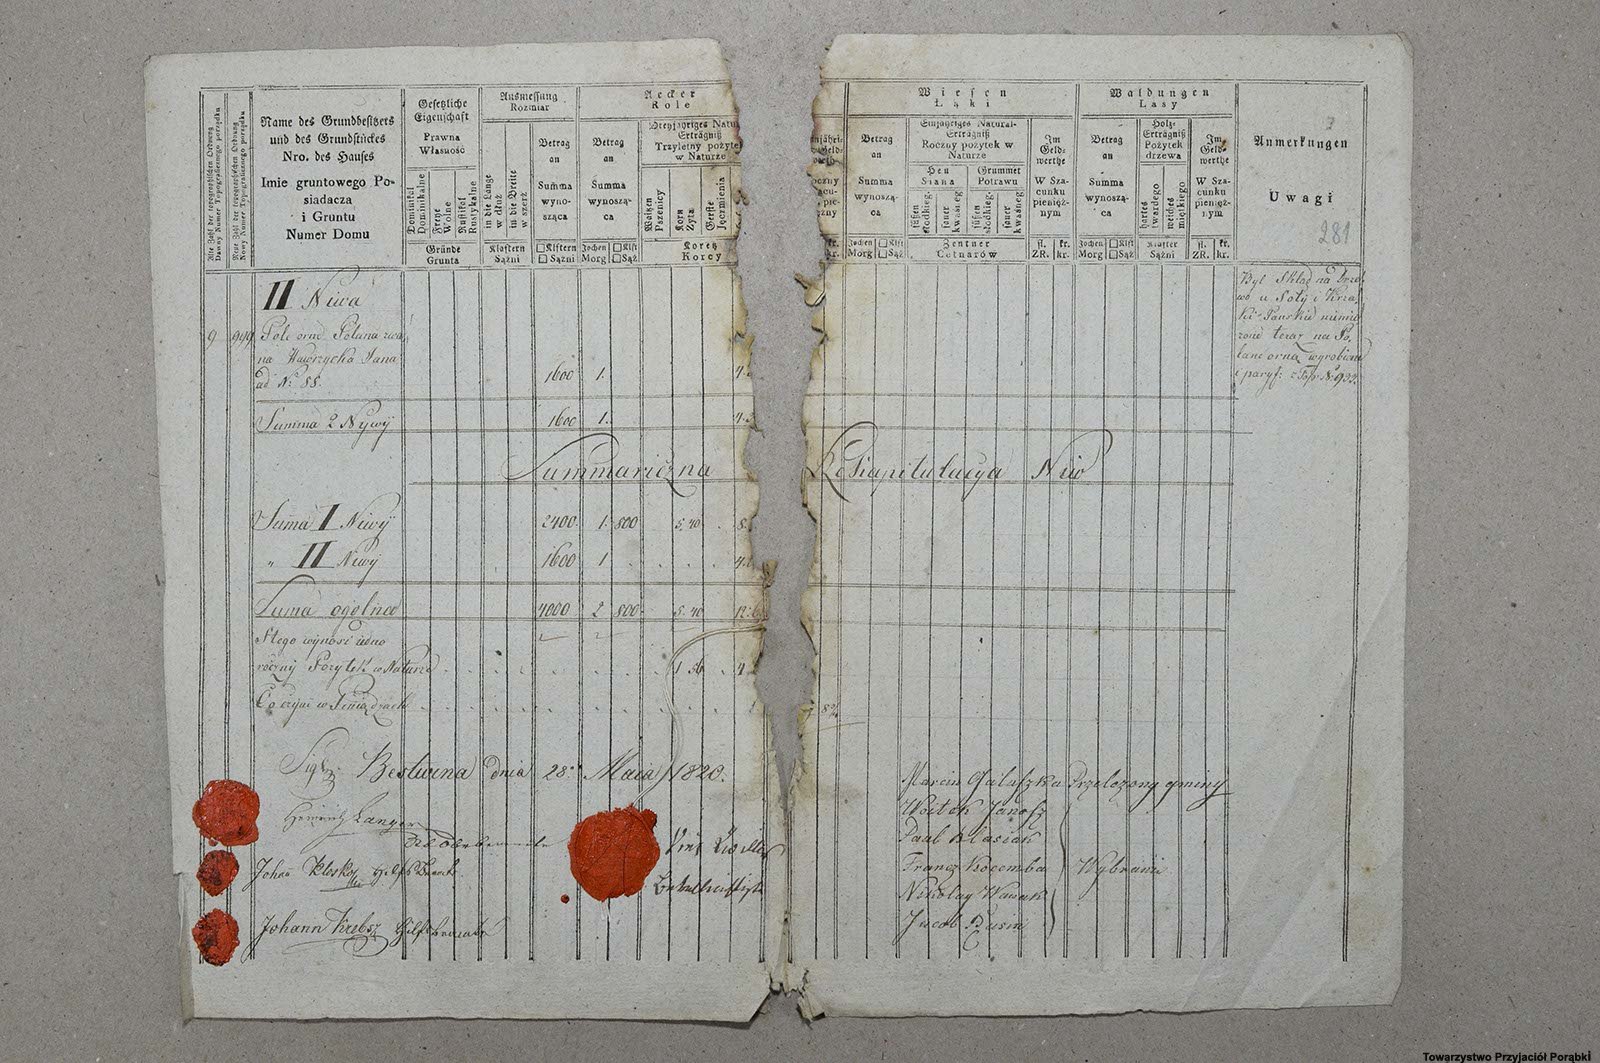 Alte Zahl der topographischen Ordnung
Dawny Numer Topograficznego porządku
Neue Zahl der topographischen Ordnung
Nowy Numer Topograficznego porządku
Name des Grundbesitzers
und des Grundstückes
Nro. des Hauses
Imie gruntowego Po-
siadacza
i Gruntu
Numer Domu
Gesetzliche
Eigenschaft
Prawna
Własność
Dominikal
Dominikalne
Freye
Wolne
Rustikal
Rustykalne
Gründe
Grunta
Ausmessung
Rozmiar
in die Länge
w dłuż
in die Breite
w szerz
Klaftern
Sążni
Betrag
an
Summa
wyno-
sząca
□Klftern
□Sążni
Aecker
Role
Betrag
an
Summa
wynoszą-
ca
Jochen □Klft
Morg □Sąż
Dreyjähriges Natu
Erträgniß
Trzyletny pożyte
w Naturze
Waitzen
Pszenicy
Korn
Żyta
Gerste
Jęczmienia
Koretz
Korcy
kr.
kr.
Wiesen
Łąki
Betrag
an
Summa
wynoszą-
ca
Jochen □Klft
Morg □Sąż
Einjähriges Natural-
Erträgniß
Roczny pożytek w
Naturze
Heu
Siana
Grummet
Potrawu
süßen
słodkieg.
sauer
kwaśneg
süßen
słodkieg.
sauer
kwaśneg.
Zentner
Cetnarów
Im
Geld-
werthe
W Sza-
cunku
pienięż-
nym
fl. kr.
ZR. kr.
Waldungen
Lasy
Betrag
an
Summa
wynoszą-
ca
Jochen □Klft
Morg □Sąż
Holz-
Erträgniß
Pożytek
drzewa
hartes
twardego
weiches
miękkiego
Klafter
Sążni
Im
Geld-
werthe
W Sza-
cunku
pienięż-
nym
fl. kr.
ZR. kr.
Anmerkungen
Uwagi
281
II Niwa
9 949 Pole orne Polana zwa
na Wawrzycka Jana
ad Nº 88. 1600 1.
Był Skład na Drze
wo u Soły i Krza
ki Panskie
teraz na Po
lane orną wyrobione
Summa 2 Niwy 1600 1.
Summaryczna Rekapitulacya Niw
Suma I Niwy 2400 1. 800 5. 40 8.
" II Niwy 1600 1
Suma ogolna 4000 2 800 5. 40 12.
Z tego wynosi iedno
roczny Pożytek w Naturze 1 56 4
Co czyni w Pieniądzach
Sigl: Bestwina dnia 28º Maia 1820.
Marcin Gałuszka Przełożony gminy
Heinrich Langer
Woitek Janosz
Paul Blasiak
Johan Kloska
Franz Kocemba Wybrani
Nikolay Wawak
Johann Krebs
Jacob Busiu
Towarzystwo Przyjaciół Porąbki